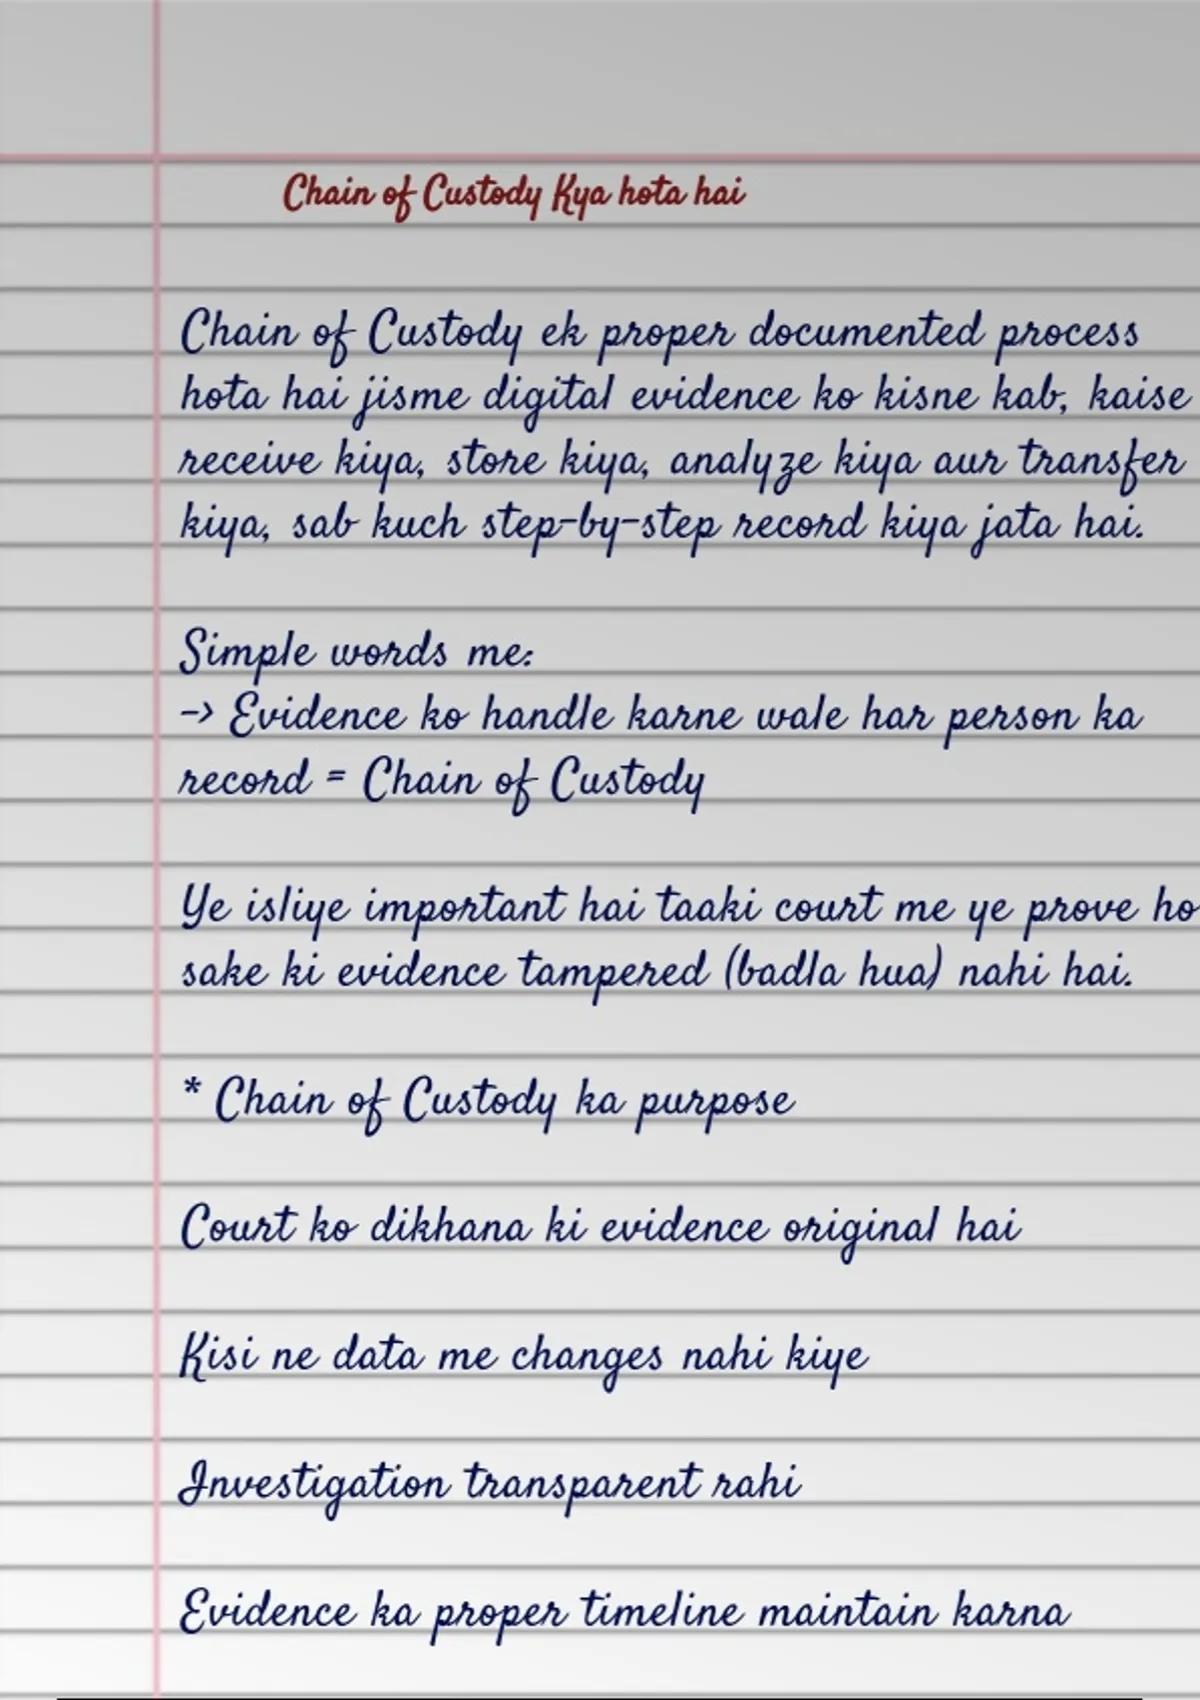 Chain of Custody Kya hota hai
Chain of Custody ek proper documented process
hota hai jisme digital evidence ko kisne kab, kaise
receive kiya, store kiya, analyze kiya aur transfer
kiya, sab kuch step-by-step record kiya jata hai.
Simple words me:
-> Evidence ko handle karne wale har person ka
record = Chain of Custody
Ye isliye important hai taaki court me ye prove ho
sake ki evidence tampered (badla hua) nahi hai.
* Chain of Custody ka purpose
Court ko dikhana ki evidence original hai
Kisi ne data me changes nahi kiye
Investigation transparent rahi
Evidence ka proper timeline maintain karna